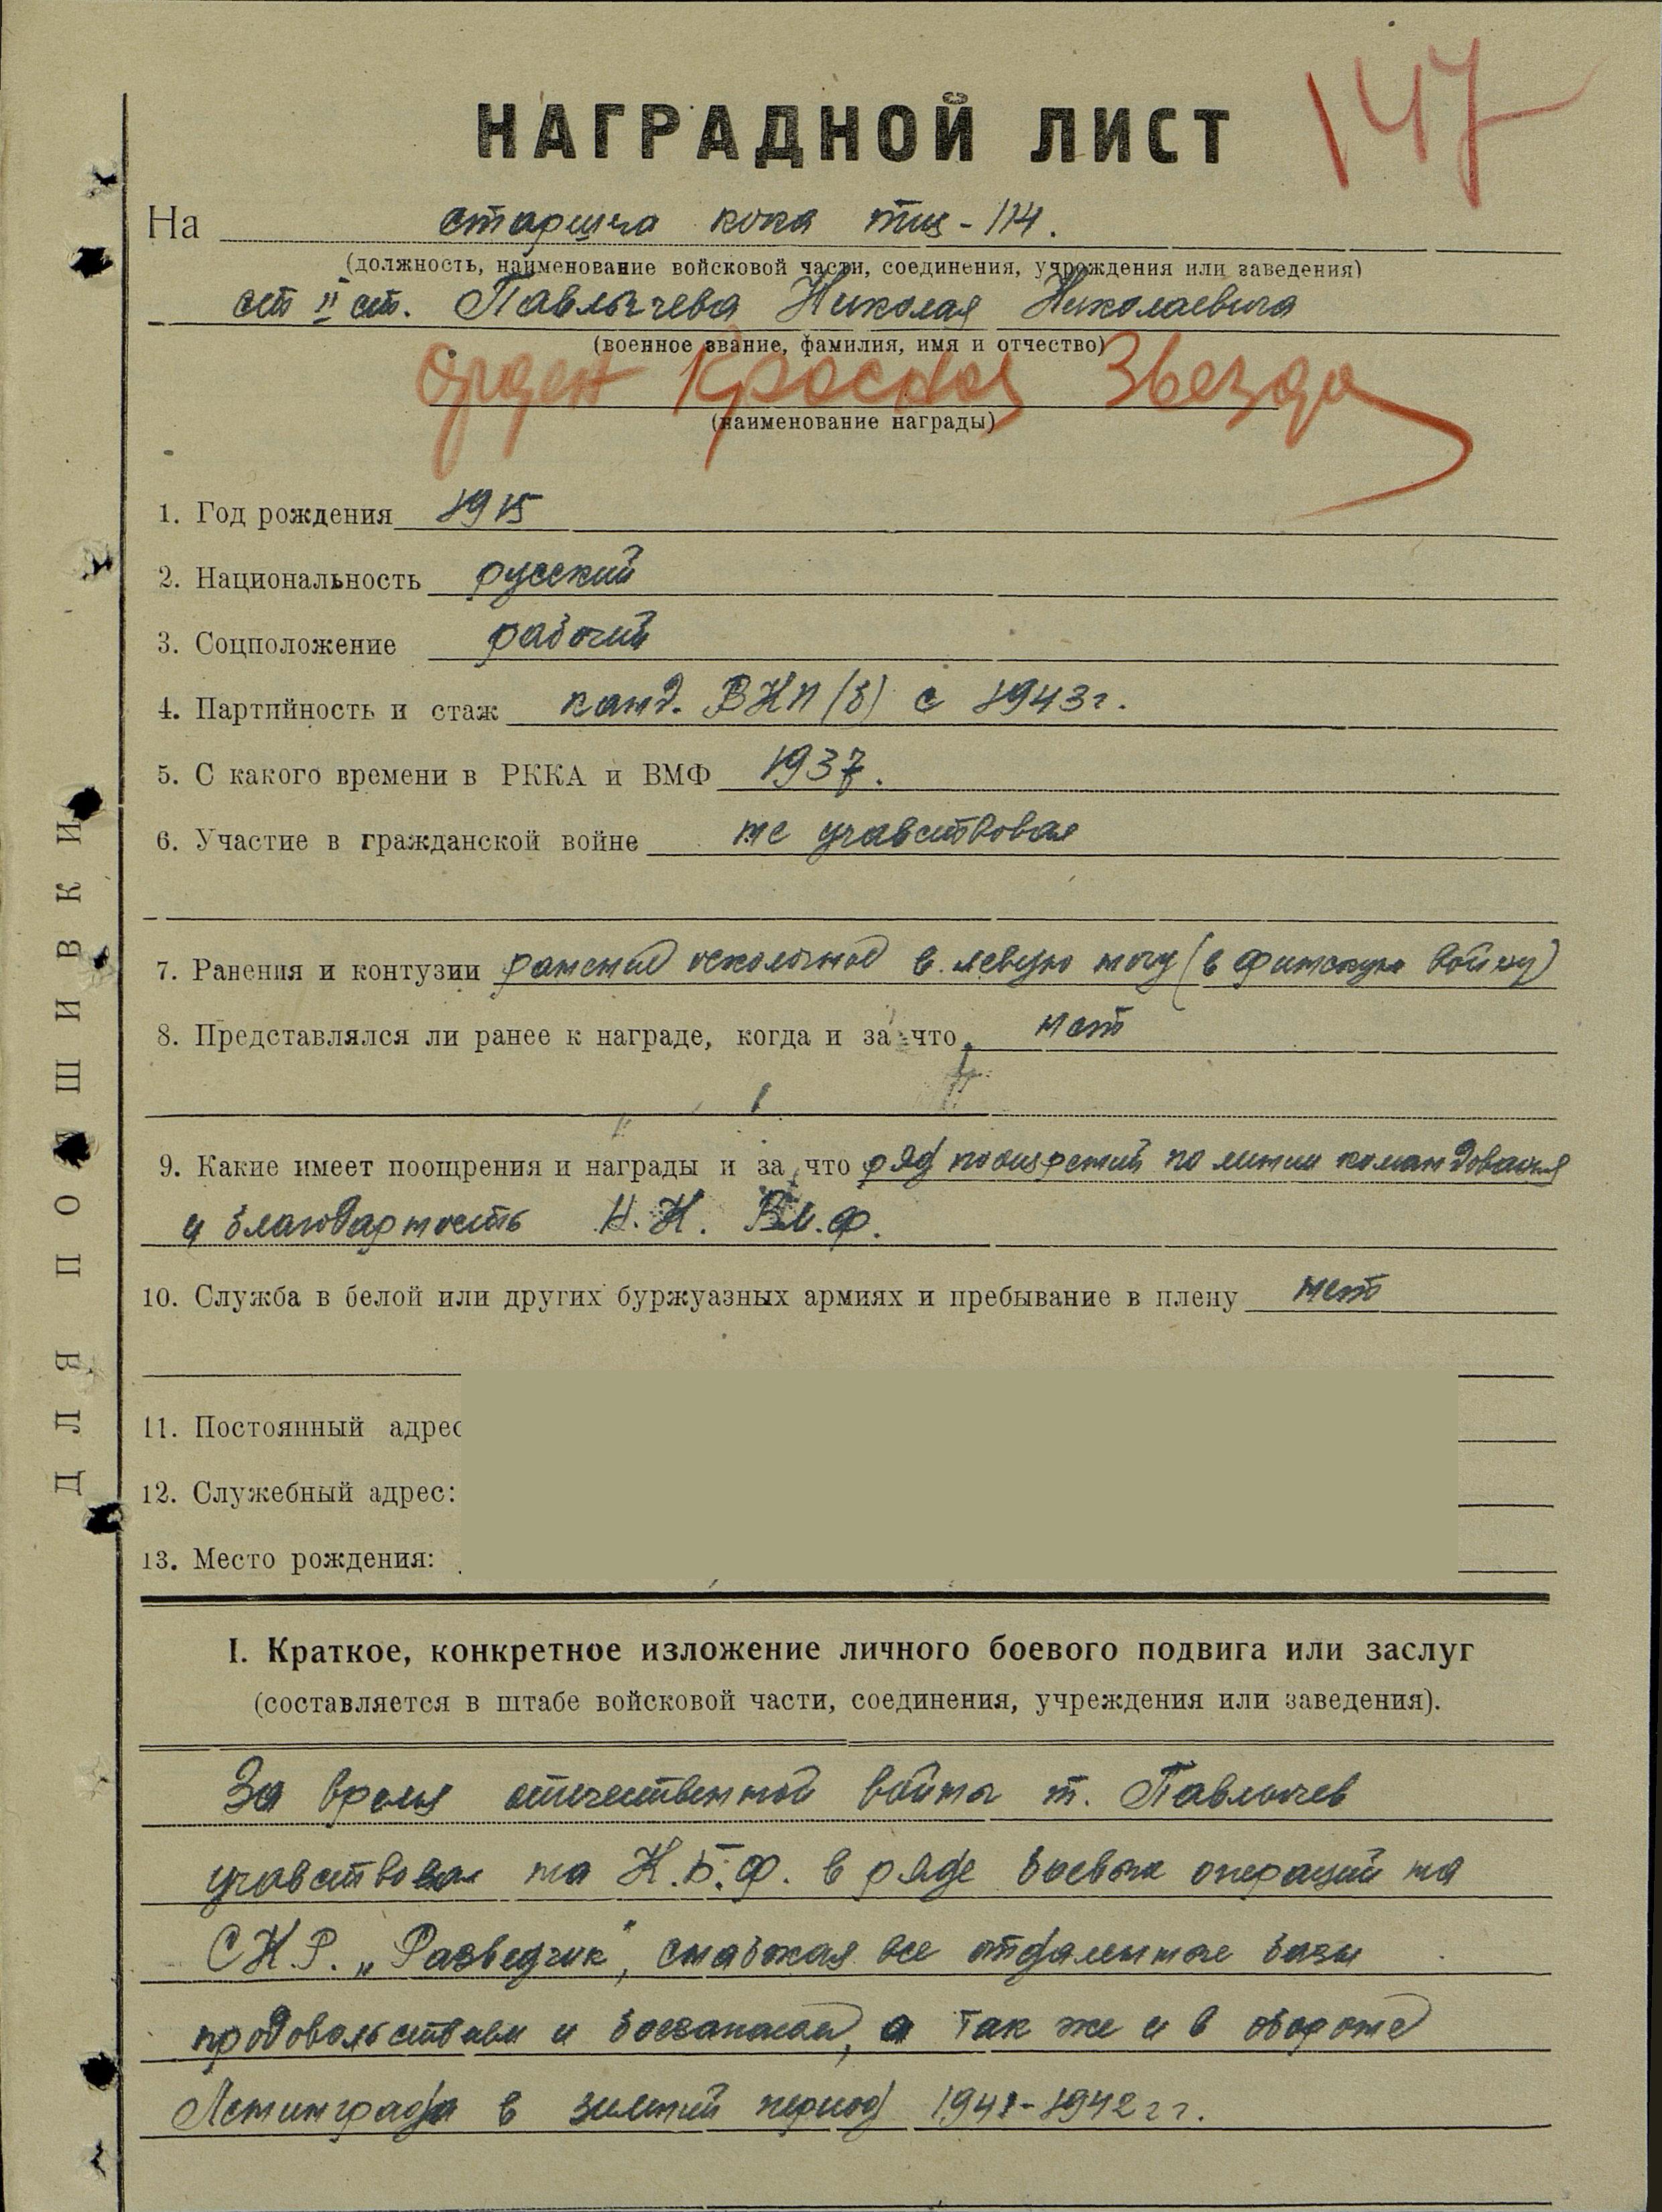 147
НАГРАДНОЙ ЛИСТ
На старшина кока тщ-114.
(должность, наименование войсковой части, соединения, учреждения или заведения)
ст II ст. Павлычева Николая Николаевича
(военное звание, фамилия, имя и отчество)
Орден Красная Звезда
(наименование награды)
1. Год рождения 1915
2. Национальность русский
3. Соцположение рабочий
4. Партийность и стаж канд. ВКП(б) с 1943г.
5. С какого времени в РККА и ВМФ 1937.
6. Участие в гражданской войне не учавствовал
7. Ранения и контузии ранение осколочное в левую ногу (в финскую войну)
8. Представлялся ли ранее к награде, когда и за что нет
9. Какие имеет поощрения и награды и за что ряд поощрений по линии командования
и благодарность Н.К. В.М.Ф.
10. Служба в белой или других буржуазных армиях и пребывание в плену нет
11. Постоянный адрес
12. Служебный адрес:
13. Место рождения:
I. Краткое, конкретное изложение личного боевого подвига или заслуг
(составляется в штабе войсковой части, соединения, учреждения или заведения).
За время отечественной войны т. Павлычев
учавствовал на К.Б.Ф. в ряде боевых операций на
СКР. „Разведчик", снабжая все отдаленные базы
продовольствием и боезапасом, а так же и в обороне
Ленинграда в зимний период 1941-1942 г г.
ДЛЯ ПОДШИВКИ